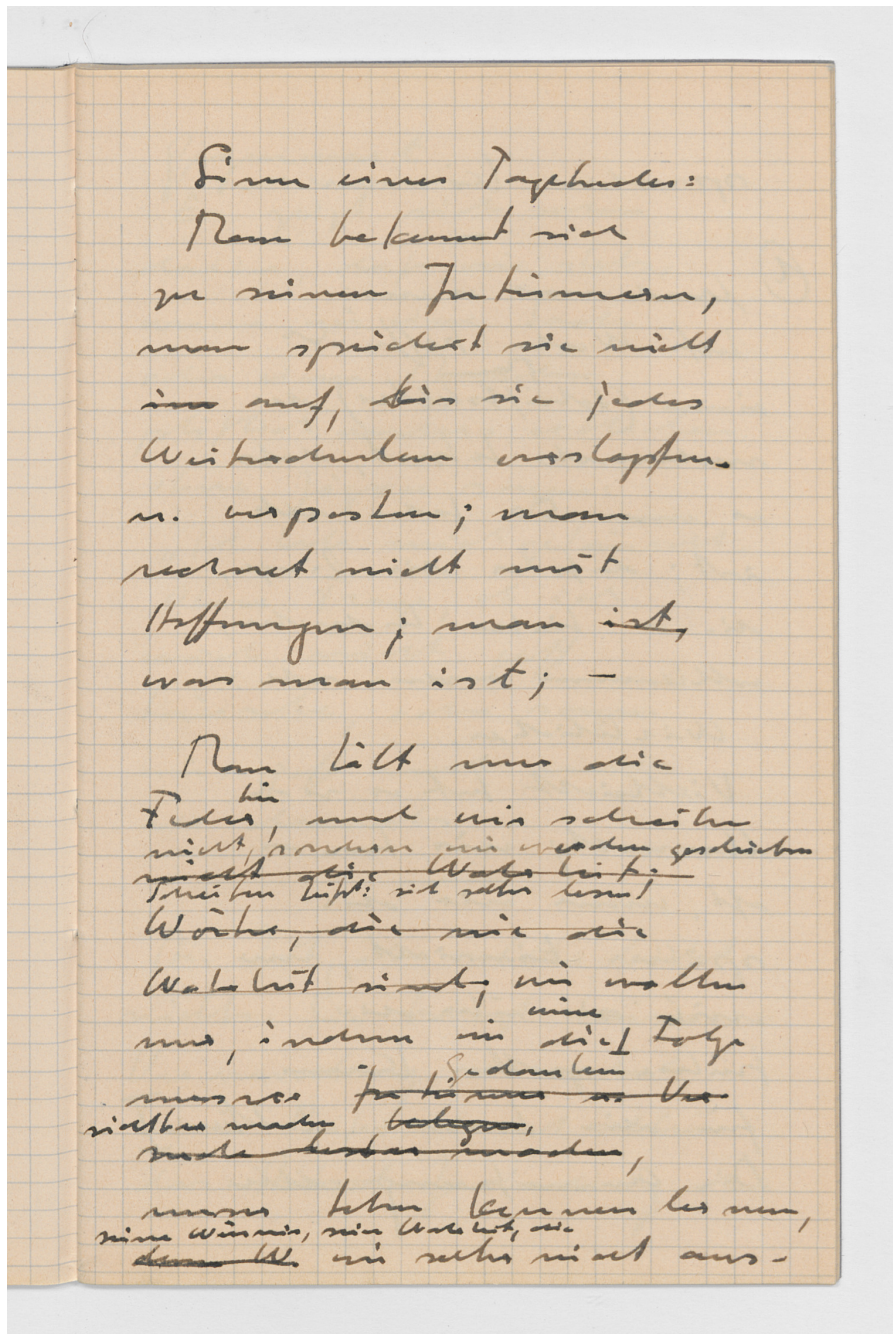 Sinn eines Tagebuches:
Man bekennt sich
zu seinen Irrtümern,
man speichert sie nicht
auf, bis sie jedes
Weiterdenken verstopfen
u. verposten; man
rechnet nicht mit
Hoffnungen; man ist,
was man ist; —
Man hält nur die
Feder hin, und wir schreiben
nicht, sondern wir werden geschrieben
nicht die Wahrheit;
Schreiben heißt: sich selber lesen!
Worte, die nie die
Wahrheit sind; wir wollen
nur, indem wir die eine Folge
unsrer Irrtümer u. Gedanken
sichtbar machen belegen,
machen,
unser Leben kennen lernen,
seine Wirrnis, seine Wahrheit, die
wir selber nicht aus-